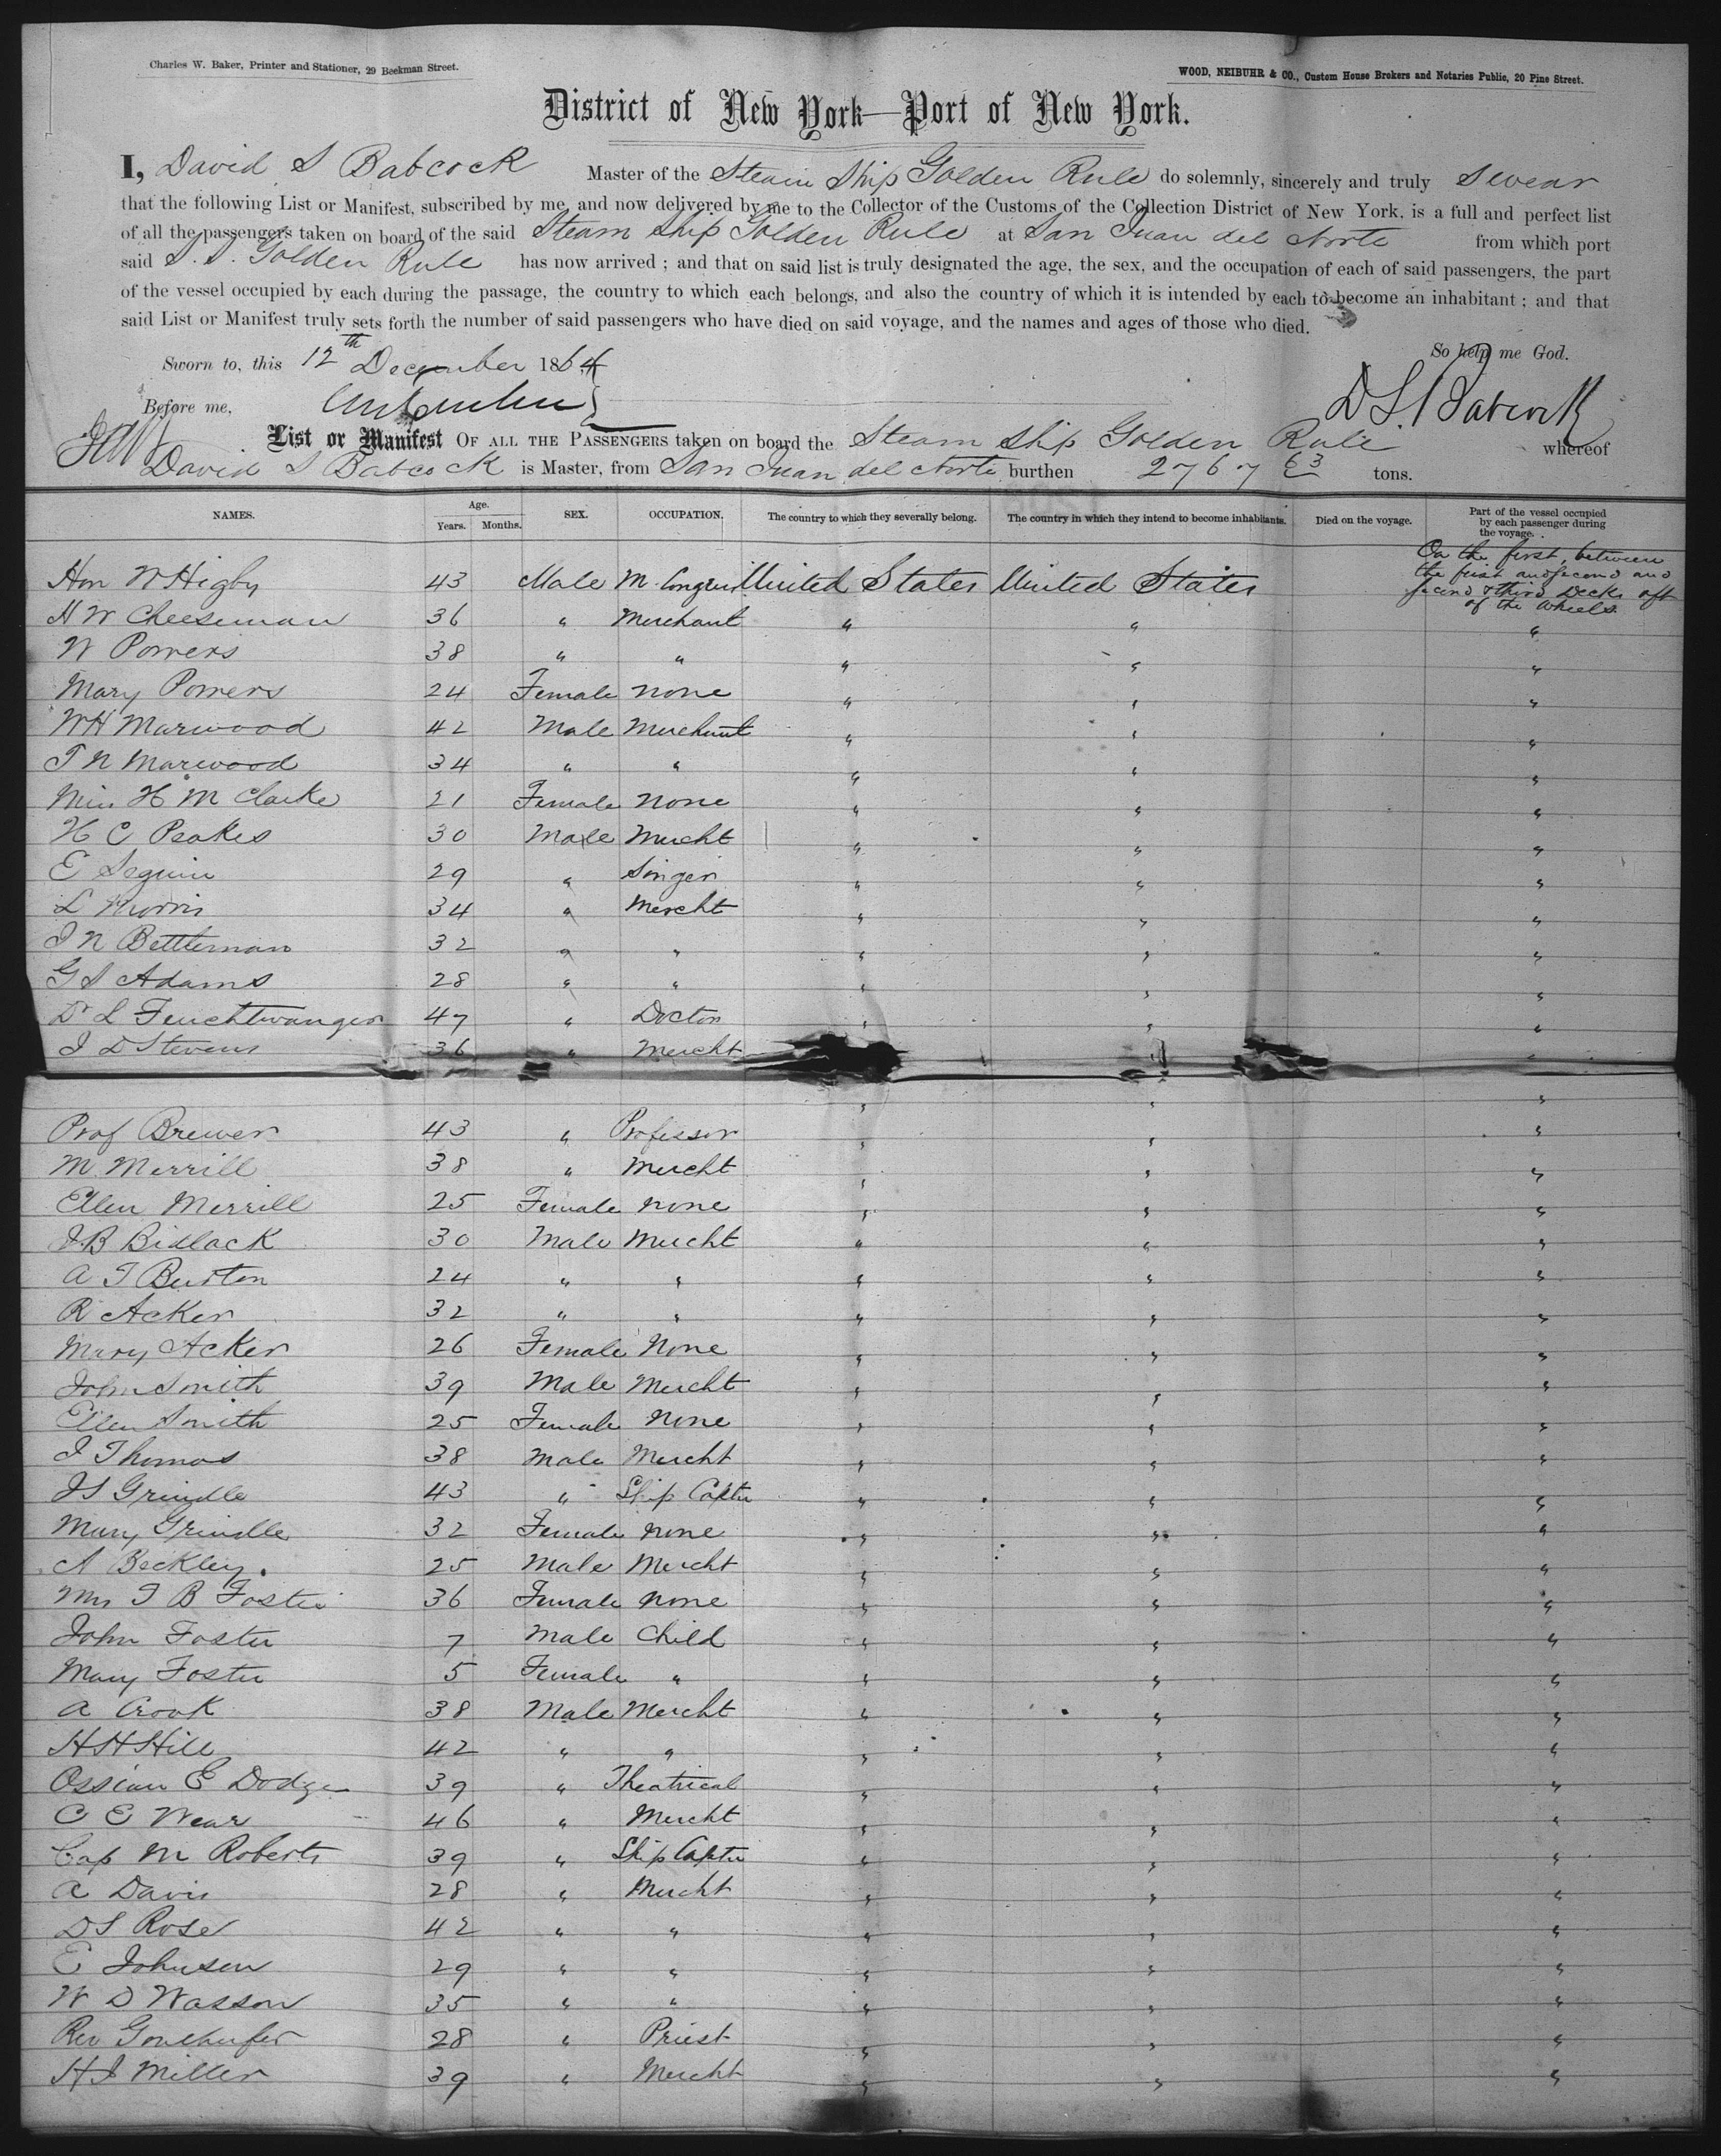 Charles W. Baker, Printer and Stationer, 29 Beekman Street.
WOOD, NEIBUHR & CO., Custom House Brokers and Notaries Public, 20 Pine Street.
District of New York—Port of New York.
I, David S Babcock Master of the Steam Ship Golden Rule do solemnly, sincerely and truly swear
that the following List or Manifest, subscribed by me, and now delivered by me to the Collector of the Customs of the Collection District of New York, is a full and perfect list
of all the passengers taken on board of the said Steam Ship Golden Rule at San Juan del Norte from which port
said S.S. Golden Rule has now arrived ; and that on said list is truly designated the age, the sex, and the occupation of each of said passengers, the part
of the vessel occupied by each during the passage, the country to which each belongs, and also the country of which it is intended by each to become an inhabitant ; and that
said List or Manifest truly sets forth the number of said passengers who have died on said voyage, and the names and ages of those who died.
Sworn to, this 12th December 1864 So help me God.
Before me, D S Babcock
List or Manifest OF ALL THE PASSENGERS taken on board the Steam Ship Golden Rule whereof
David S Babcock is Master, from San Juan del Norte burthen 2767 63 tons.
NAMES. Age. Years. Months. SEX. OCCUPATION. The country to which they severally belong. The country in which they intend to become inhabitants. Died on the voyage. Part of the vessel occupied by each passenger during the voyage.
On the first, between
the first and second and
second & third Decks aft
of the wheels.
Hon W Higby 43 Male M. Congress United States United States
H W Cheeseman 36 " Merchant " " "
W Powers 38 " " " " "
Mary Powers 24 Female none " " "
W H Marwood 42 Male Merchant " " "
T N Marwood 34 " " " " "
Miss H M Clarke 21 Female none " " "
H C Peakes 30 Male Mercht " " "
E Seguin 29 " Singer " " "
L Morris 34 " Mercht " " "
J N Bettleman 32 " " " " "
G S Adams 28 " " " " "
Dr L Feuchtwanger 47 " Doctor " " "
J D Stevens 36 " Mercht " "
" " "
Prof Brewer 43 " Professor " " "
M Merrill 38 " Mercht " " "
Ellen Merrill 25 Female none " " "
J B Bidlack 30 Male Mercht " " "
A T Burton 24 " " " " "
R Acker 32 " " " " "
Mary Acker 26 Female None " " "
John Smith 39 Male Mercht " " "
Ellen Smith 25 Female none " " "
J Thomas 38 Male Mercht " " "
J S Grindle 43 " Ship Captn " " "
Mary Grindle 32 Female none " " "
A Beckley 25 Male Mercht " " "
Mrs T B Foster 36 Female none " " "
John Foster 7 Male Child " " "
Mary Foster 5 Female " " " "
A Crook 38 Male Mercht " " "
H H Hill 42 " " " " "
Ossian E Dodge 39 " Theatrical " " "
C E Wear 46 " Mercht " " "
Cap M Roberts 39 " Ship Captn " " "
A Davis 28 " Mercht " " "
D S Rose 42 " " " " "
E Johnson 29 " " " " "
W D Wasson 35 " " " " "
Rev 28 " Priest " " "
H J Miller 39 " Mercht " " "